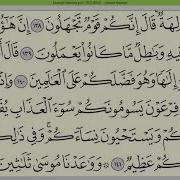 لِهَةٌ قَالَ إِنَّكُمْ قَوْمٌ تَجْهَلُونَ ١٣٨ إِنَّ
يهِ وَبَٰطِلٌ مَّا كَانُوا۟ يَعْمَلُونَ ١٣٩ قَالَ
إِلَٰهًا وَهُوَ فَضَّلَكُمْ عَلَى ٱلْعَٰلَمِينَ ١٤٠
فِرْعَوْنَ يَسُومُونَكُمْ سُوٓءَ ٱلْعَذَابِ
كُمْ وَيَسْتَحْيُونَ نِسَآءَكُمْ وَفِى ذَٰلِكُم
كُمْ عَظِيمٌ ١٤١ وَوَٰعَدْنَا مُوسَىٰ ثَلَٰثِينَ